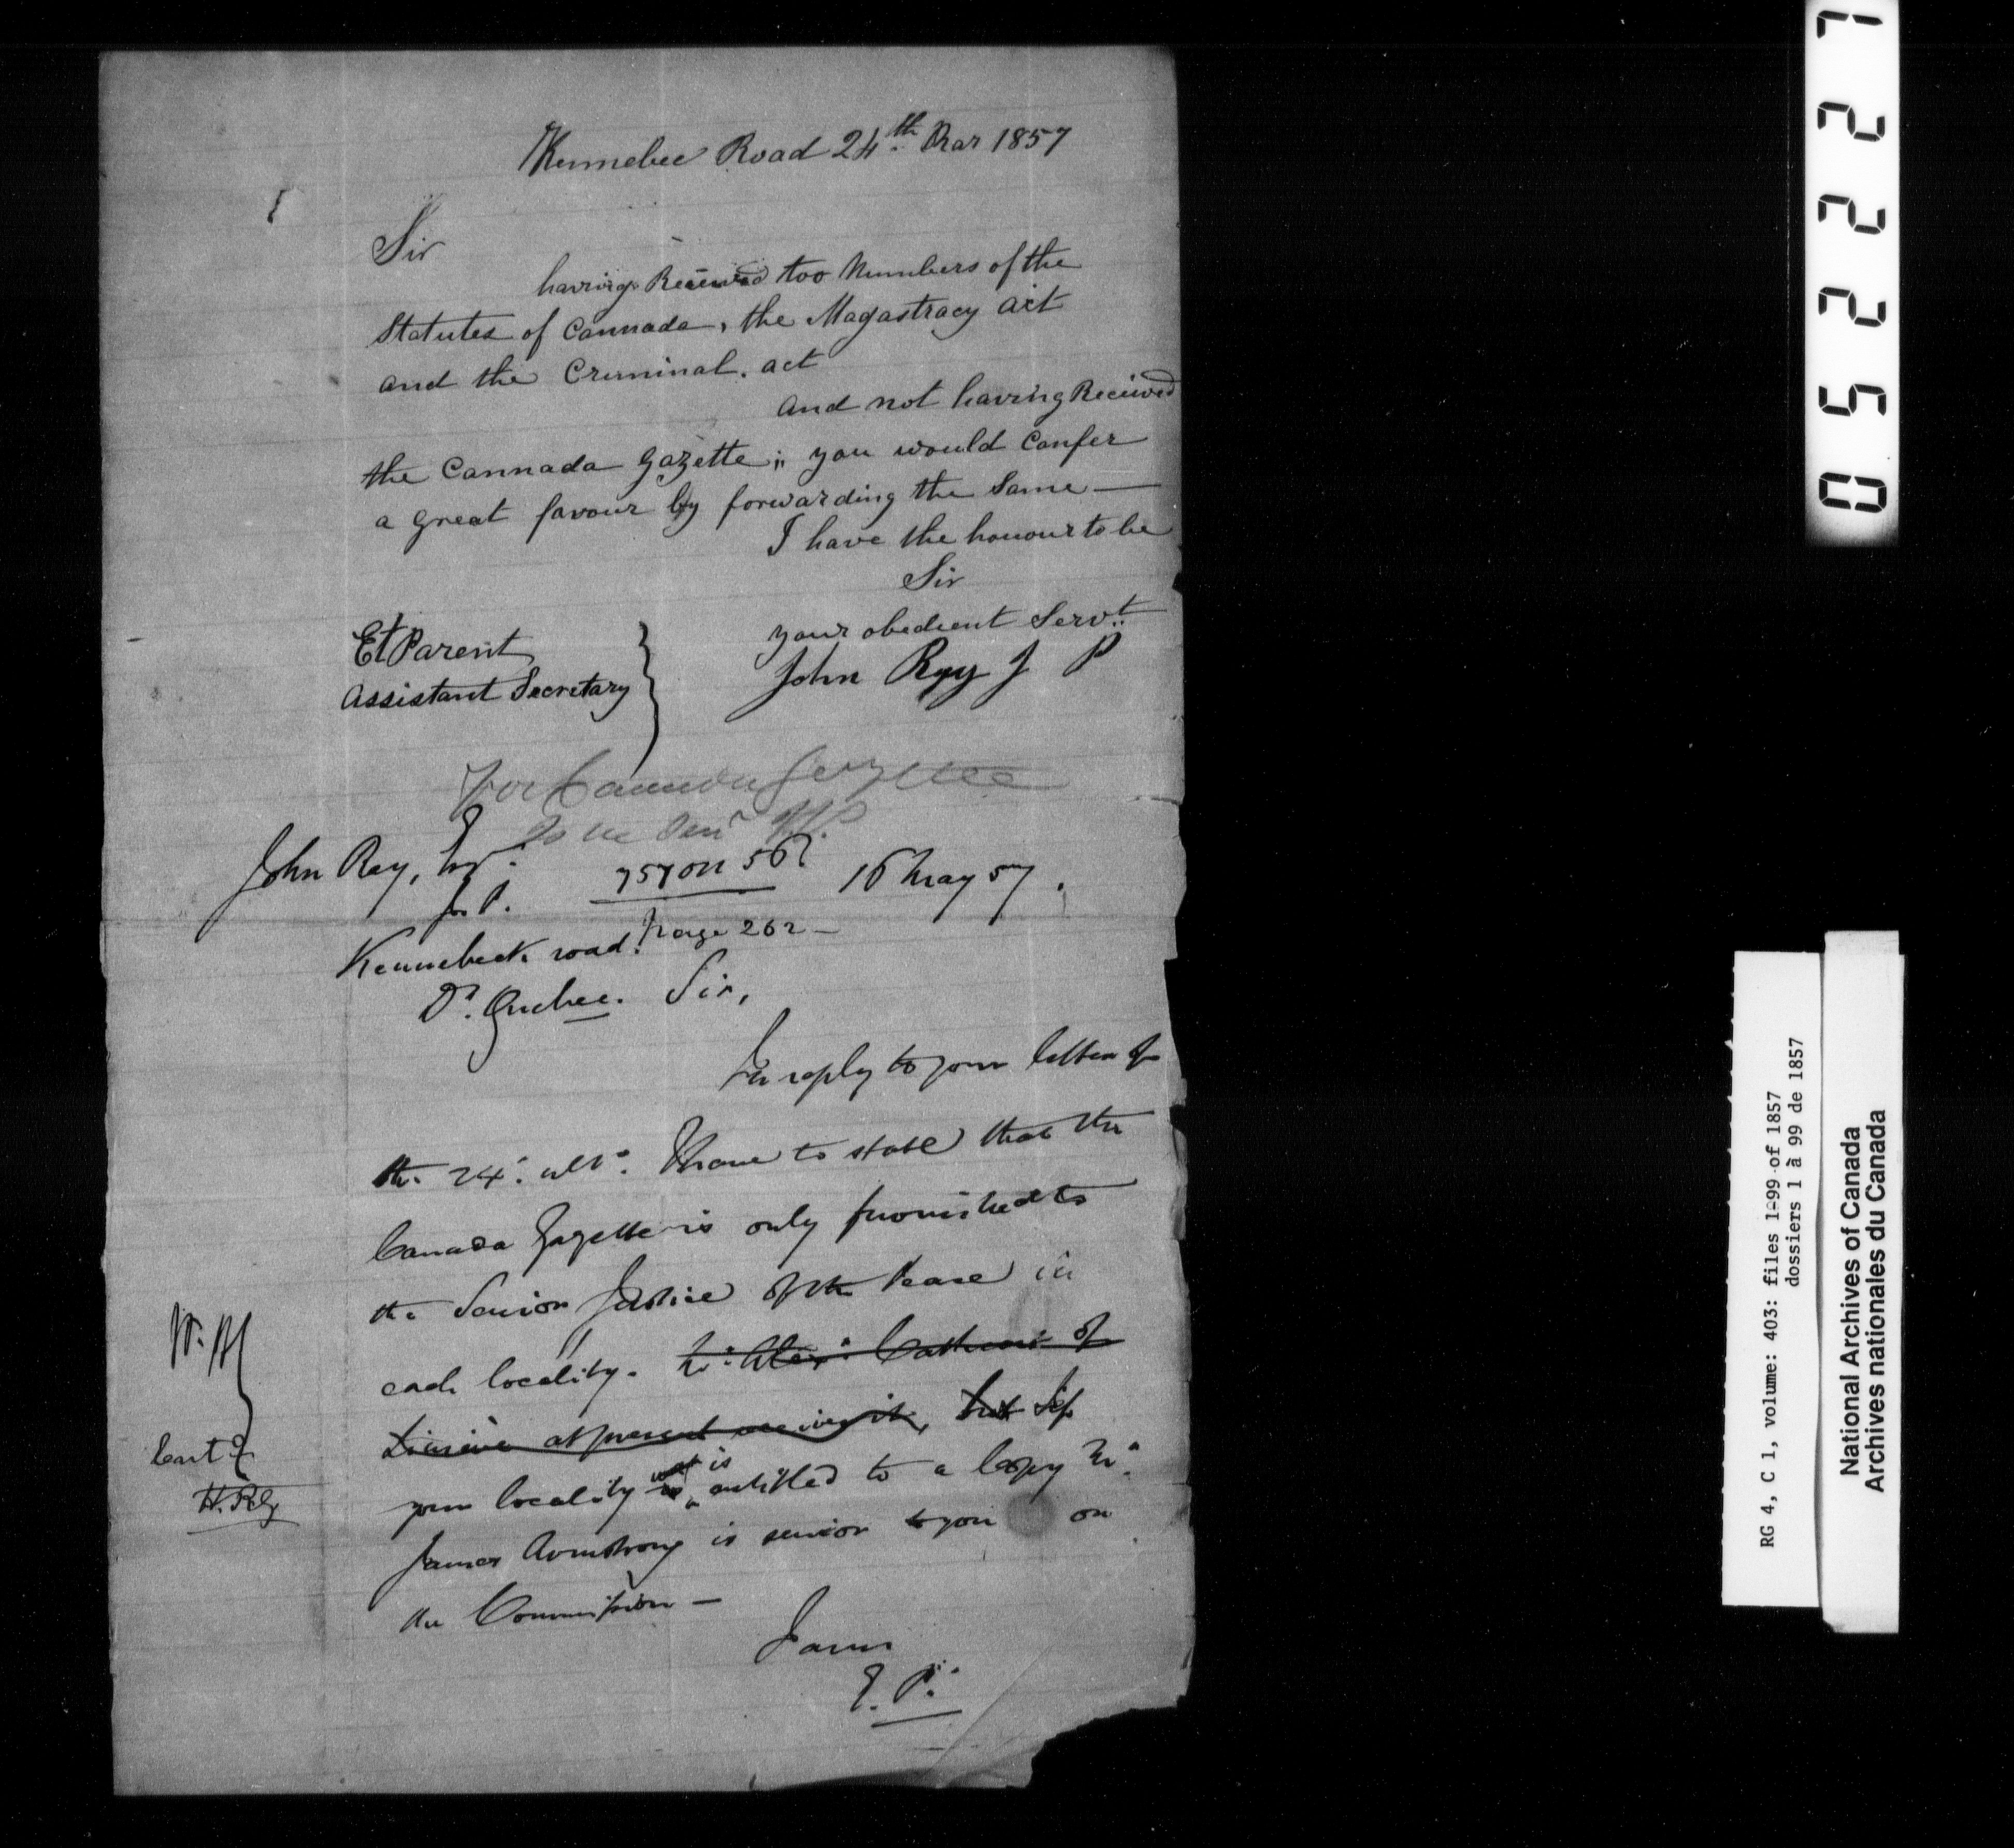 Kennebec Road 24th Mar 1857
Sir
having Received too Numbers of the
Statutes of Cannada, the Magastracy act
and the Criminal. act
and not having Received
the Cannada Gazette; you would Confer
a great favour by forwarding the Same —
I have the honour to be
Sir
your obedient Servt.
John Ray J P
Et Parent
Assistant Secretary
for Cannada Gazette
John Ray, Esqr.
J. P.
757 on 56
16 May 57.
page 262 —
Kennebeck road.
Dt. Quebec.
Sir,
In reply to your letter of
the 24. ulto. I have to state that the
Canada Gazette is only furnished to
the Senior Justice of the Peace in
each locality. Mr. Alexr. of
at present receives it, but if
your locality is entitled to a Copy Mr.
James Armstrong is senior to you on
the Commission —
I am
E. P.
Entd
H. Rly
052227
RG 4, C 1, volume: 403: files 1-99 of 1857
dossiers 1 à 99 de 1857
National Archives of Canada
Archives nationales du Canada